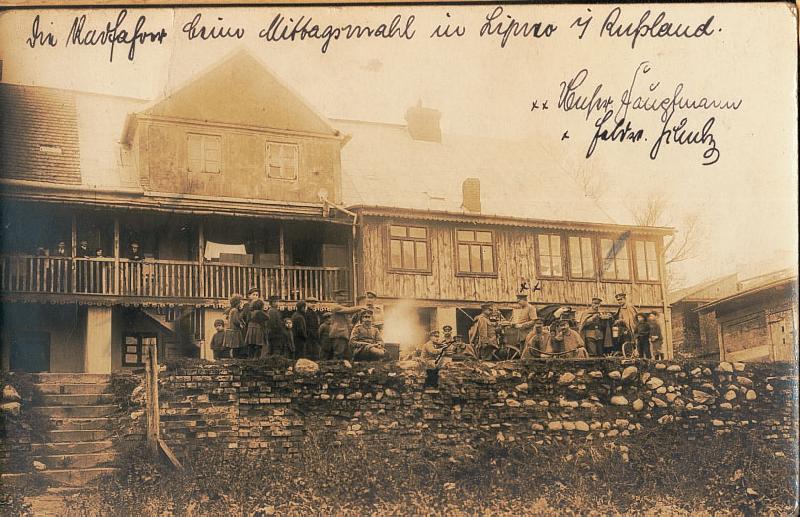 Die Radfahrer beim Mittagsmahl in Lipno i/ Rußland.
×× Unser Hauptmann
× Feldw. Schulz